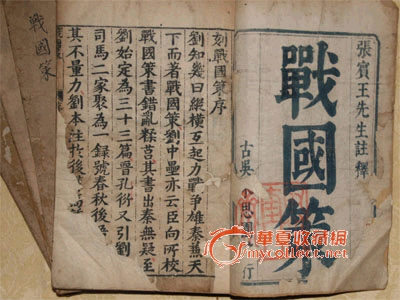 張賓王先生註釋
戰國策
古吳
行
刻戰國策序
劉知幾曰縱橫互起力戰爭雄秦兼天
下而著戰國策劉中壘亦云臣向所校
戰國策書錯亂糅莒其書出秦無疑至
劉始定為三十三篇晉孔衍又引劉
司馬二家聚為一錄號春秋後語
其不量力劉本注於後
戰國策
華夏收藏網
mycollect.net